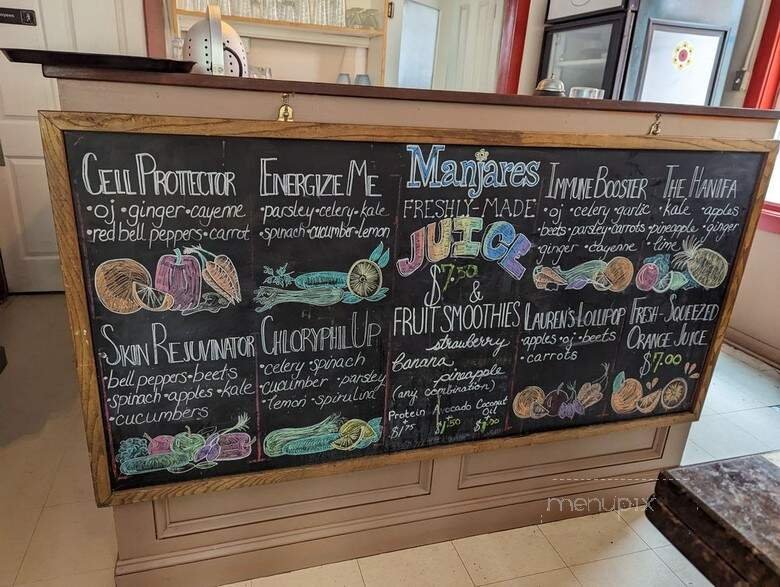 CELL PROTECTOR
• oj • ginger • cayenne
• red bell peppers • carrot
ENERGIZE ME
• parsley • celery • kale
• spinach • cucumber • lemon
Manjares
FRESHLY-MADE
JUICE
$7.50
&
FRUIT SMOOTHIES
strawberry
banana
pineapple
(any combination)
Protein Avocado Coconut Oil
IMMUNE BOOSTER
• oj • celery • garlic
beets • parsley • carrots
ginger • cayenne
THE HANIFA
• kale • apples
pineapple • ginger
• lime
SKIN REJUVINATOR
• bell peppers • beets
• spinach • apples • kale
• cucumbers
CHLORYPHIL UP
• celery • spinach
• cucumber • parsley
• lemon • spirulina
LAUREN'S LOLLIPOP
apples • oj • beets
• carrots
FRESH-SQUEEZED
ORANGE JUICE
$7.00
menupix